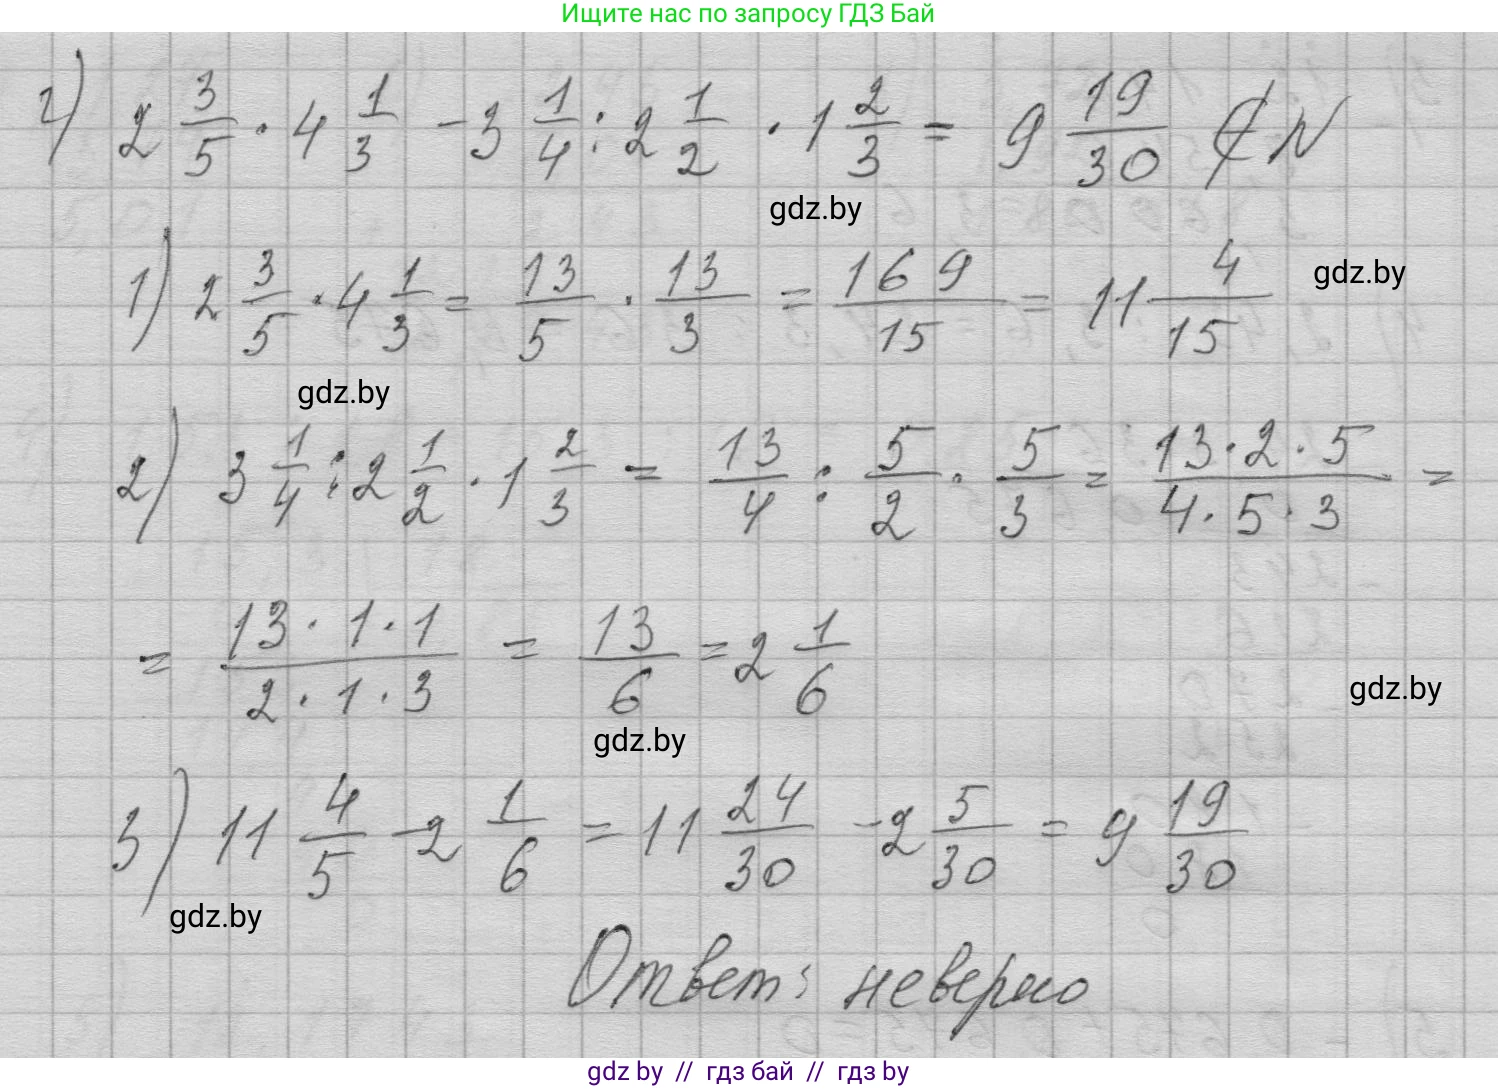 Ищите нас по запросу ГДЗ Бай
г) 2 3/5 · 4 1/3 - 3 1/4 : 2 1/2 · 1 2/3 = 9 19/30 ∉ N
gdz.by
1) 2 3/5 · 4 1/3 = 13/5 · 13/3 = 169/15 = 11 4/15
gdz.by
gdz.by
2) 3 1/4 : 2 1/2 · 1 2/3 = 13/4 : 5/2 · 5/3 = 13·2·5/4·5·3 =
= 13·1·1/2·1·3 = 13/6 = 2 1/6
gdz.by
gdz.by
3) 11 4/5 - 2 1/6 = 11 24/30 - 2 5/30 = 9 19/30
gdz.by
Ответ: неверно
gdz by // гдз бай // гдз by